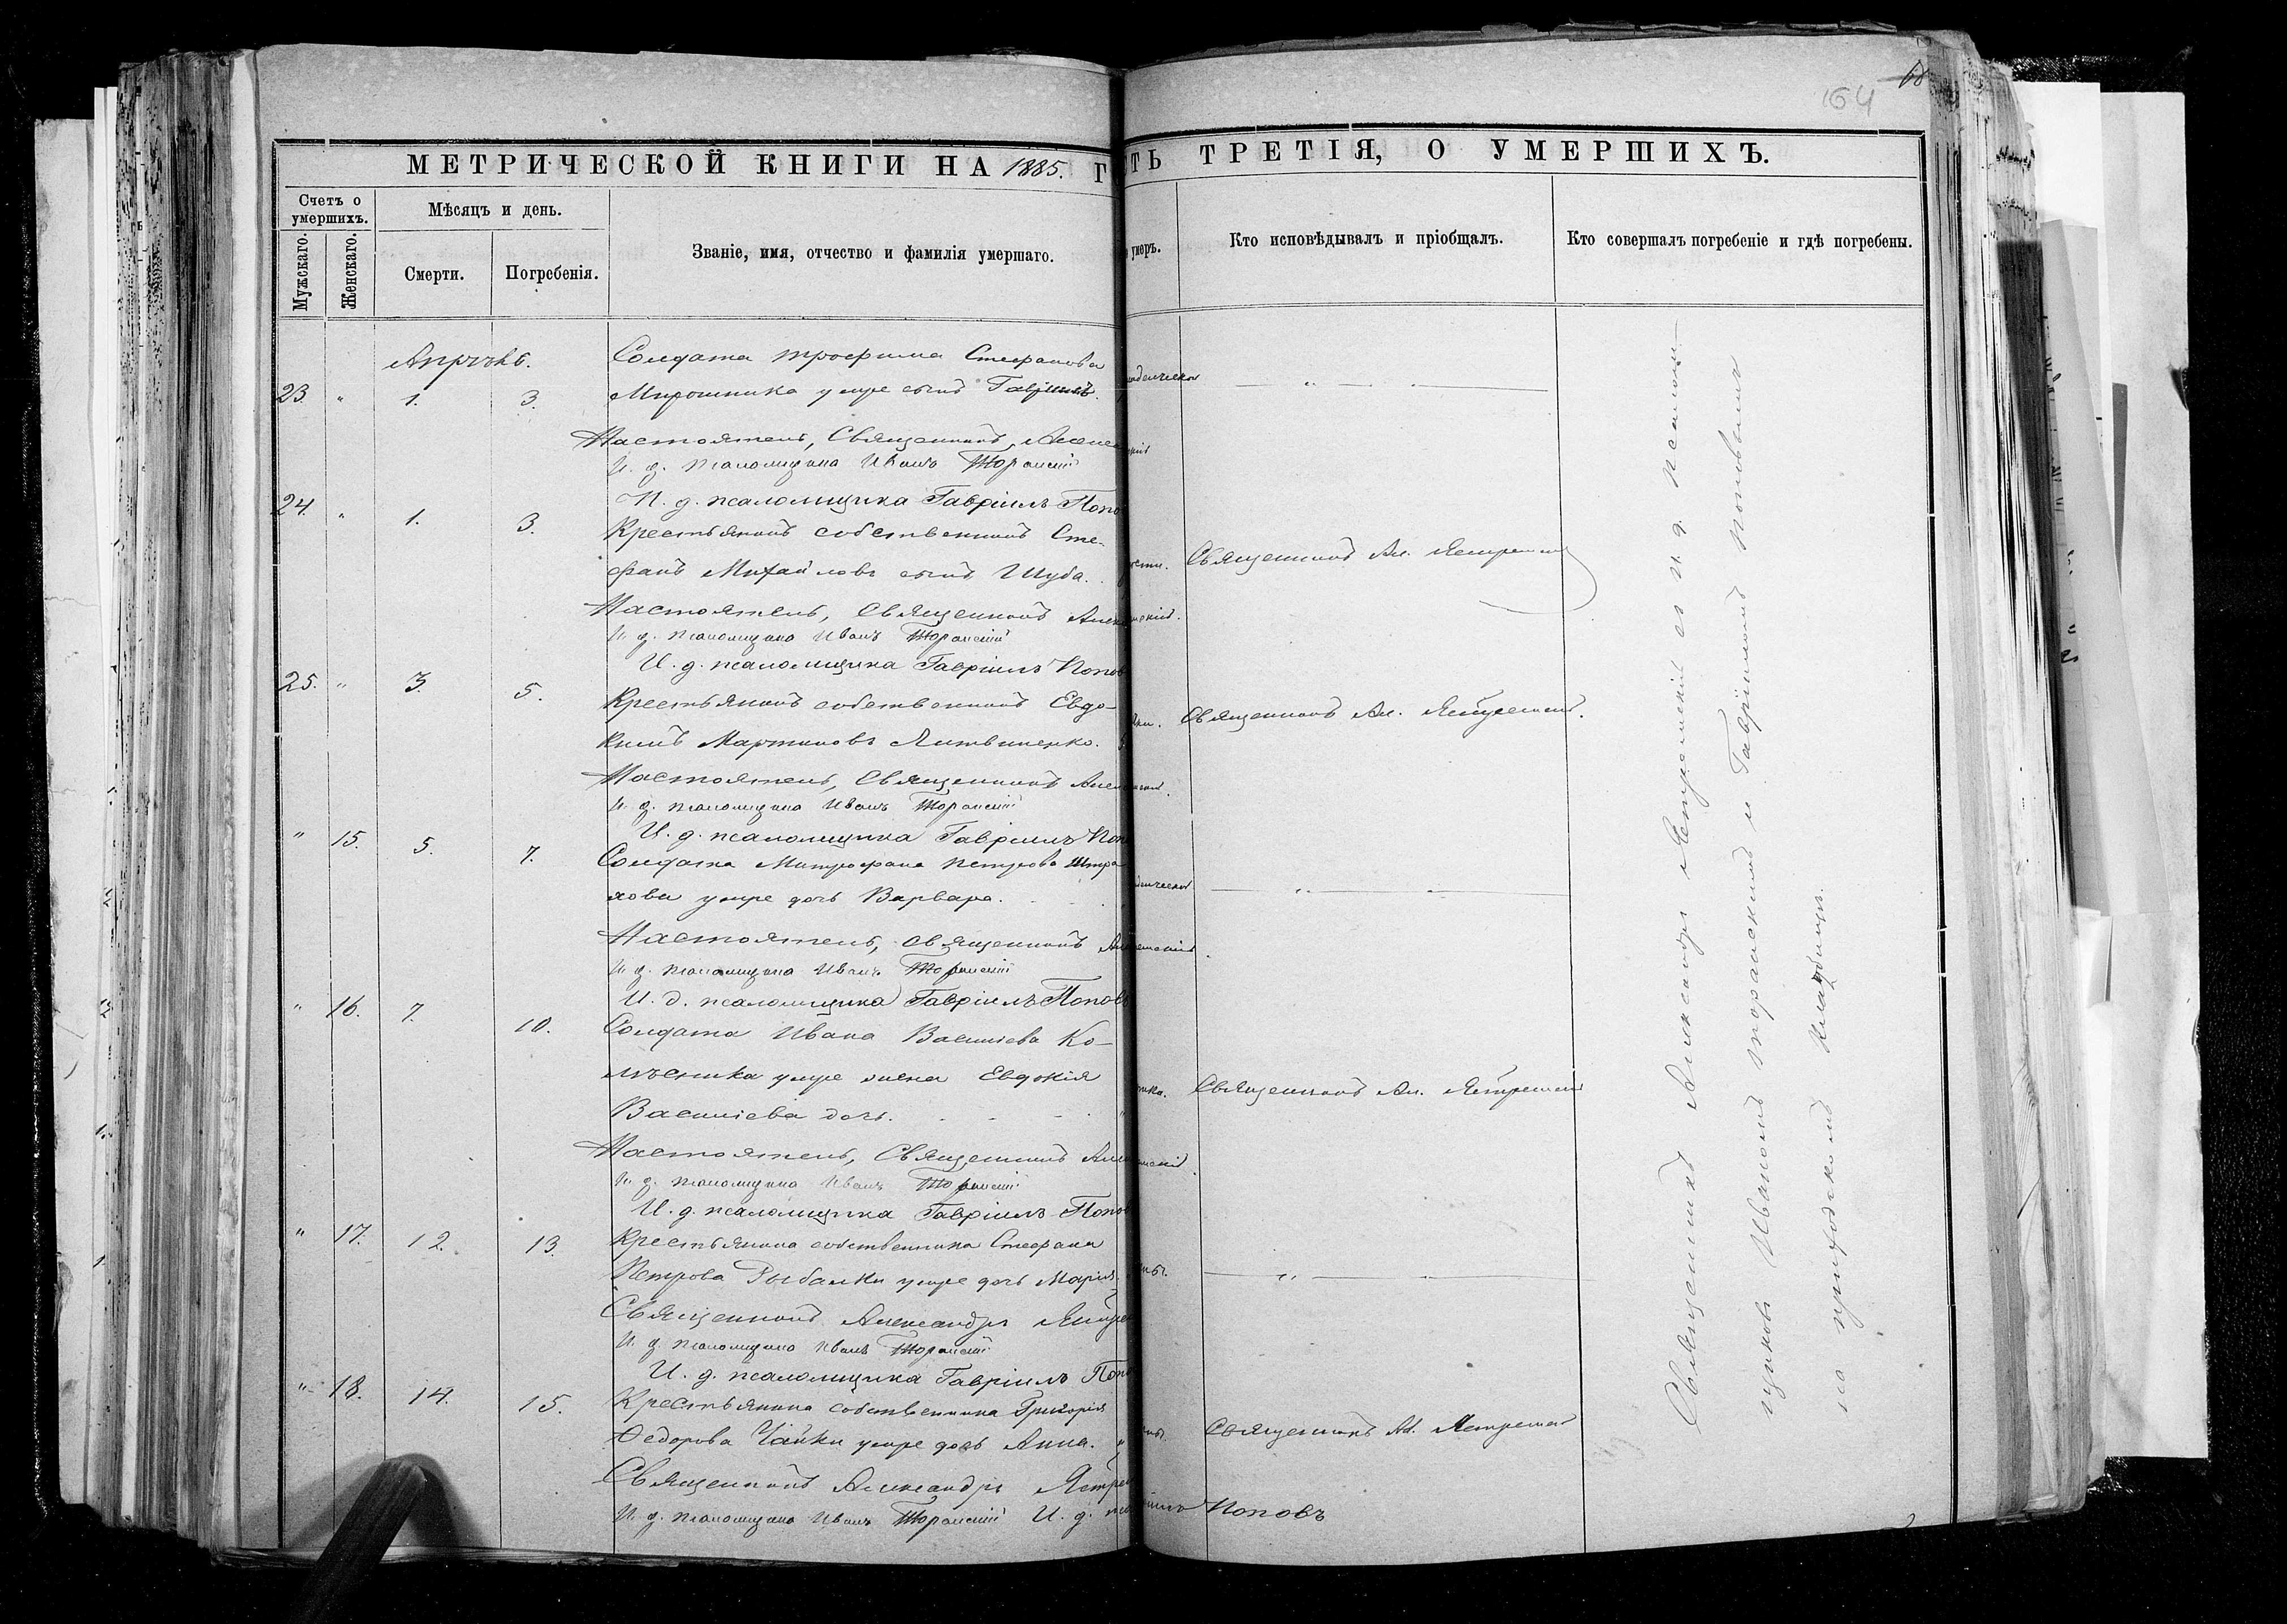 164
МЕТРИЧЕСКОЙ КНИГИ НА 1885. Г
ТЬ ТРЕТІЯ, О УМЕРШИХЪ.
Счетъ о умершихъ.
Мужскаго.
Женскаго.
Мѣсяцъ и день.
Смерти.
Погребенія.
Званіе, имя, отчество и фамилія умершаго.
умеръ.
Кто исповѣдывалъ и пріобщалъ.
Кто совершалъ погребеніе и гдѣ погребены.
Апрѣль.
Солдата Трофима Стефанова
23. " 1. 3. Мирошника умре сынъ Гавріилъ.
Настоятель, Священникъ
И. д. псаломщика Иванъ Торанскій
И. д. псаломщика Гавріилъ Попо
24. " 1. 3. Крестьянинъ собственникъ Сте-
фанъ Михайловъ сынъ Шуба. Священникъ Ал.
Настоятель, Священникъ
И. д. псаломщика Иванъ Торанскій
И. д. псаломщика Гавріилъ Попов
25. " 3. 5. Крестьянинъ собственникъ Евдо-
кимъ Мартиновъ Литвиненко. Священникъ Ал.
Настоятель, Священникъ
И. д. псаломщика Иванъ Торанскій
И. д. псаломщика Гавріилъ Поп
" 15. 5. 7. Солдата Митрофана Петрова Штра-
хова умре дочь Варвара.
Настоятель, Священникъ
И. д. псаломщика Иванъ Торанскій
И. д. псаломщика Гавріилъ Попов
" 16. 7. 10. Солдата Ивана Василіева Ко-
лѣсника умре жена Евдокія
Василіева дочь. Священникъ Ал.
Настоятель, Священникъ
И. д. псаломщика Иванъ Торанскій
И. д. псаломщика Гавріилъ Попов
" 17. 12. 13. Крестьянина собственника Стефана
Петрова Рыбалки умре дочь Марія.
Священникъ Александръ
И. д. псаломщика Иванъ Торанскій
И. д. псаломщика Гавріилъ Поп
" 18. 14. 15. Крестьянина собственника Григорія
Федорова Чайки умре дочь Анна. Священникъ Ал.
Священникъ Александръ
И. д. псаломщика Иванъ Торанскій И. д. Поповъ
Священникъ Александръ съ и. д. псалом-
щиковъ Иваномъ Торанскимъ и Гавріиломъ Поповымъ
на приходскомъ кладбищѣ.